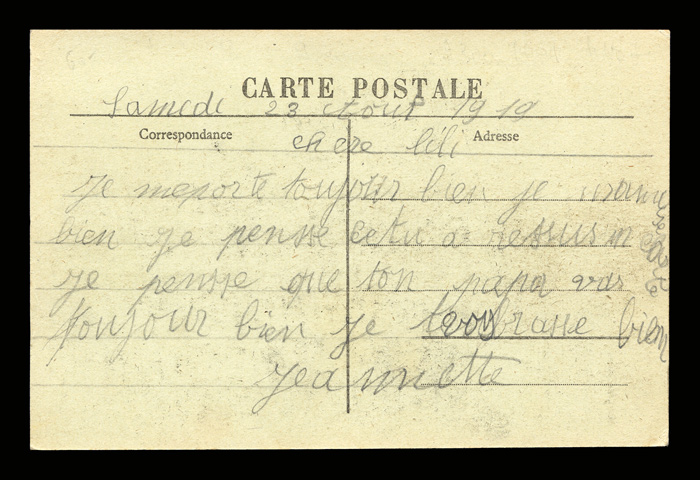 CARTE POSTALE
Samedi 23 Aout 1919
Correspondance
Adresse
chere lili
Je meporte toujour bien je
bien je pensse cetu a ressus m
carte
Je pensse que ton papa vas
toujour bien je brasse bien
Jeannette